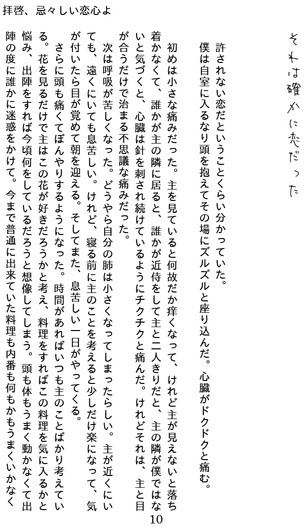 拝啓、忌々しい恋心よ
それは確かに恋だった
許されない恋だということくらい分かっていた。
僕は自室に入るなり頭を抱えてその場にズルズルと座り込んだ。心臓がドクドクと痛む。
初めは小さな痛みだった。主を見ていると何故だか痒くなって、けれど主が見えないと落ち
着かなくて、誰かが主の隣に居ると、誰かが近侍をして主と二人きりだと、主の隣が僕ではな
いと気づくと、心臓は針を刺され続けているようにチクチクと痛んだ。けれどそれは、主と目
が合うだけで治まる不思議な痛みだった。
次は呼吸が苦しくなった。どうやら自分の肺は小さくなってしまったらしい。主が近くにい
ても、遠くにいても息苦しい。けれど、寝る前に主のことを考えると少しだけ楽になって、気
が付いたら目が覚めて朝を迎える。そしてまた、息苦しい一日がやってくる。
さらに頭も痛くてぼんやりするようになった。時間があればいつも主のことばかり考えてい
る。花を見るだけで主はこの花が好きだろうかと考え、料理をすればこの料理を気に入るかと
悩み、出陣をすれば今頃何をしているだろうと想像してしまう。頭も体もうまく動かなくて出
陣の度に誰かに迷惑をかけて。今まで普通に出来ていた料理も内番も何もかもうまくいかなく
10